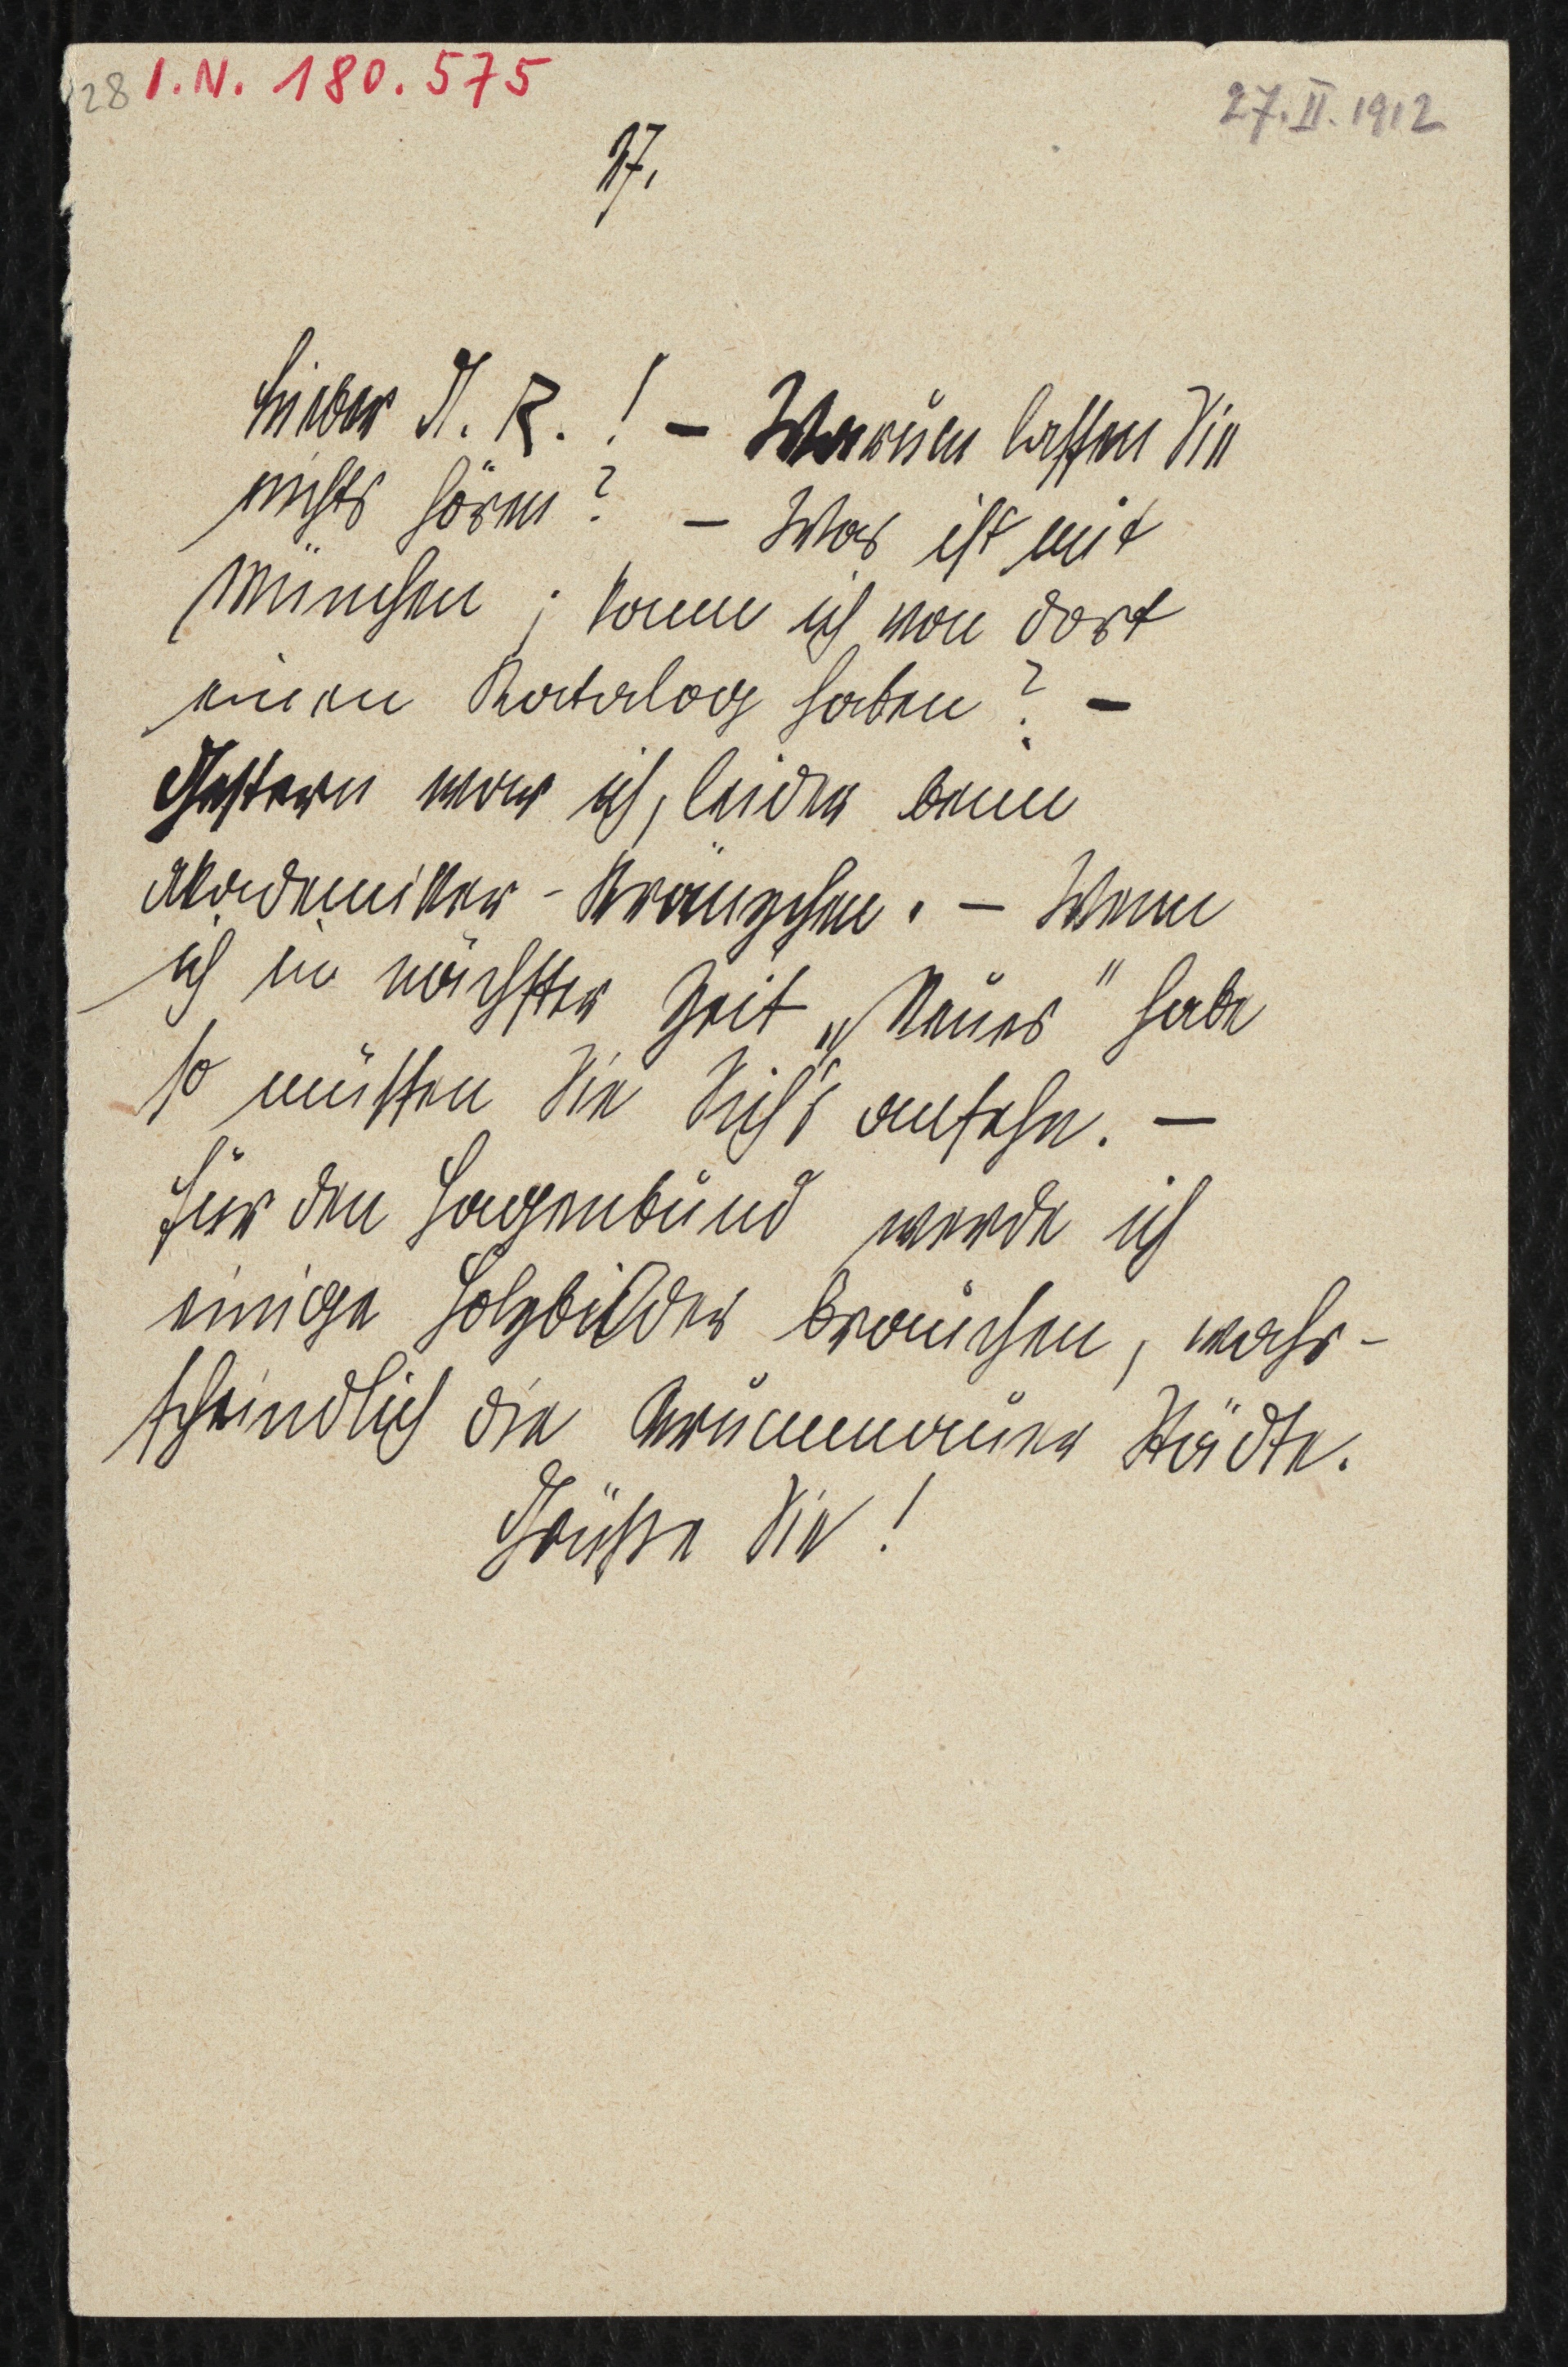 28 I.N. 180.575
27. II. 1912
27.
Lieber A. R. ! – Warum lassen Sie
nichts hören? – Was ist mit
München ; kann ich von dort
einen Katalog haben? –
Gestern war ich, leider beim
Akademiker-Kränzchen. – Wenn
ich in nächster Zeit „Neues" habe
so müssen Sie Sich's ansehn. –
Für den Hagenbund werde ich
einige Holzbilder brauchen, wahr-
scheindlich die Krummauer Städte.
Grüsse Sie!